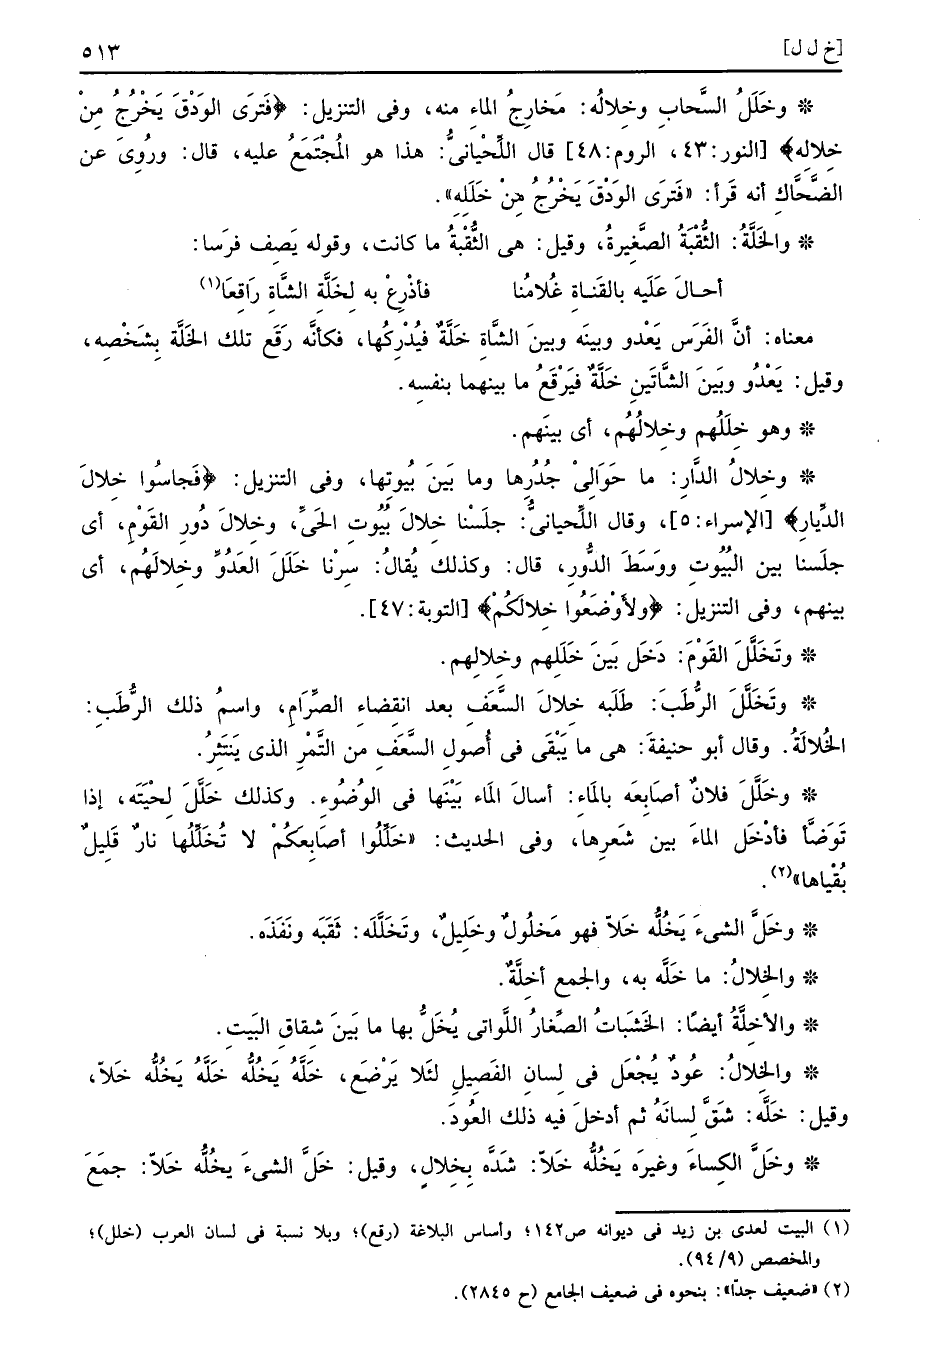 [خ ل ل] ٥١٣
* وخَلَلُ السَّحاب وخلالُه: مَخارِجُ الماء منه، وفى التنزيل: ﴿فَترَى الودْقَ يَخْرُجُ مِنْ
خِلالِه﴾ [النور:٤٣، الروم:٤٨] قال اللِّحْيانىُّ: هذا هو المُجْتَمَعُ عليه، قال: ورُوِىَ عن
الضَّحَّاك أنه قَرأ: «فَترَى الودْقَ يَخْرُجُ مِنْ خَلَلِه».
* والخَلَّةُ: الثُّقبَة الصَّغيرةُ، وقيل: هى الثُّقْبةُ ما كانت، وقوله يَصِف فرَسا:
أحـالَ عَلَيه بالقَنـاة غُلامُنا فأذْرِعْ به لخَلَّةِ الشَّاةِ رَاقِعَا(١)
معناه: أنَّ الفَرَس يَعْدو وبينَه وبينَ الشَّاة خَلَّةٌ فيُدْرِكُها، فكأنَّه رَقَع تلك الخَلَّة بِشَخْصِه،
وقيل: يَعْدُو وبَينَ الشَّاتَينِ خَلَّةٌ فيَرْقَعُ ما بينهما بنفسِه.
* وهو خِلَلُهم وخِلالُهُم، أى بينَهم.
* وخِلالُ الدَّارِ: ما حَوَالىْ جُدُرِها وما بَينَ بُيوتِها، وفى التنزيل: ﴿فَجاسُوا خلالَ
الدِّيارِ﴾ [الإسراء:٥]، وقال اللِّحيانىُّ: جلَسْنا خلالَ بيُوتِ الحَىِّ، وخِلالَ دُورِ القَوْمِ، أى
جلَسنا بين البُيوتِ ووَسَطَ الدُّورِ، قال: وكذلك يُقالُ: سِرْنا خَلَلَ العَدُوِّ وخِلالَهُم، أى
بينهم، وفى التنزيل: ﴿ولأَوْضَعُوا خلالَكُمْ﴾ [التوبة:٤٧].
* وتَخَلَّلَ القَوْمَ: دَخَل بَينَ خَلَلِهم وخِلالِهم.
* وتَخَلَّلَ الرُّطَبَ: طَلَبه خلالَ السَّعَفِ بعد انقضاء الصِّرَامِ، واسمُ ذلك الرُّطَبِ:
الخُلالَةُ. وقال أبو حنيفةَ: هى ما يَبْقَى فى أُصول السَّعَفِ من التَّمْرِ الذى يَنْتَثِرُ.
* وخَلَّلَ فلانٌ أصَابِعَه بالماء: أسالَ الماء بَيْنَها فى الوُضُوءِ. وكذلك خَلَّلَ لحْيَتَه، إذا
تَوَضَّأ فأدْخَل الماءَ بين شَعرِها، وفى الحديث: «خَلِّلُوا أصَابِعَكُمْ لا تُخَلِّلُها نارٌ قَليلٌ
بُقْياها»(٢).
* وخَلَّ الشىءَ يَخُلُّه خَلاّ فهو مَخلُولٌ وخَلِيلٌ، وتَخَلَّلَه: ثَقَبَه ونَفَذَه.
* والخِلالُ: ما خَلَّه به، والجمع أخِلَّةٌ.
* والأخِلَّةُ أيضًا: الخَشَباتُ الصِّغارُ اللَّواتى يُخَلُّ بها ما بَينَ شِقاقِ البَيتِ.
* والخِلالُ: عُودٌ يُجْعَل فى لسانِ الفَصِيلِ لئَلا يَرْضَع، خَلَّهُ يَخُلُّه خَلَّهُ يَخُلُّه خَلاّ،
وقيل: خَلَّه: شَقَّ لِسانَهُ ثم أدخلَ فيه ذلك العُودَ.
* وخَلَّ الكِساءَ وغيرَه يَخُلُّه خَلاّ: شدَّه بِخلالٍ، وقيل: خَلَّ الشىءَ يخُلُّه خَلاّ: جمَعَ
(١) البيت لعدى بن زيد فى ديوانه ص١٤٢؛ وأساس البلاغة (رقع)؛ وبلا نسبة فى لسان العرب (خلل)؛
والمخصص (٩/ ٩٤).
(٢) «ضعيف جدّا»: بنحوه فى ضعيف الجامع (ح ٢٨٤٥).